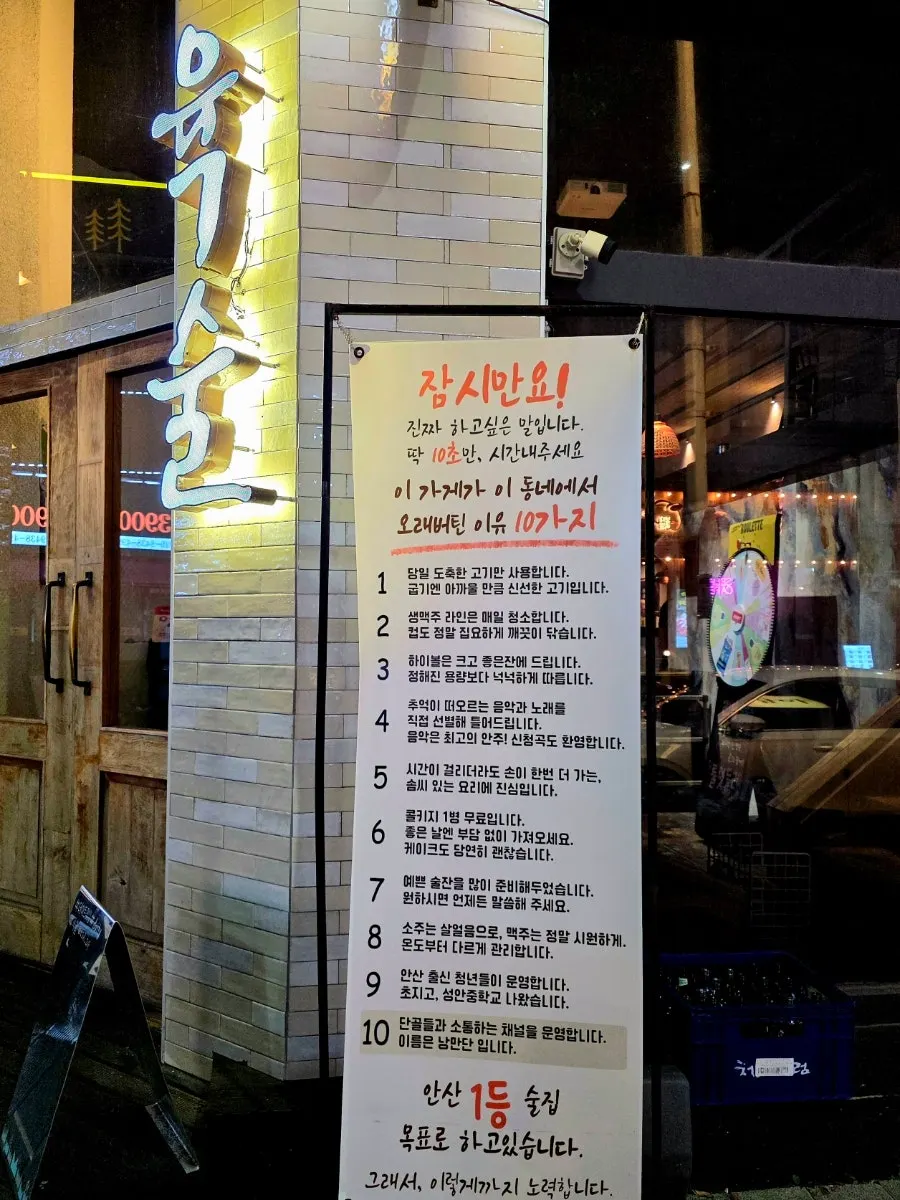 육술
잠시만요!
진짜 하고싶은 말입니다.
딱 10초만, 시간내주세요
이 가게가 이 동네에서
오래버틴 이유 10가지
1 당일 도축한 고기만 사용합니다.
굽기엔 아까울 만큼 신선한 고기입니다.
2 생맥주 라인은 매일 청소합니다.
컵도 정말 집요하게 깨끗이 닦습니다.
3 하이볼은 크고 좋은잔에 드립니다.
정해진 용량보다 넉넉하게 따릅니다.
4 추억이 떠오르는 음악과 노래를
직접 선별해 틀어드립니다.
음악은 최고의 안주! 신청곡도 환영합니다.
5 시간이 걸리더라도 손이 한번 더 가는,
솜씨 있는 요리에 진심입니다.
6 콜키지 1병 무료입니다.
좋은 날엔 부담 없이 가져오세요.
케이크도 당연히 괜찮습니다.
7 예쁜 술잔을 많이 준비해두었습니다.
원하시면 언제든 말씀해 주세요.
8 소주는 살얼음으로, 맥주는 정말 시원하게.
온도부터 다르게 관리합니다.
9 안산 출신 청년들이 운영합니다.
초지고, 성안중학교 나왔습니다.
10 단골들과 소통하는 채널을 운영합니다.
이름은 낭만단 입니다.
안산 1등 술집
목표로 하고있습니다.
그래서, 이렇게까지 노력합니다.
ROULETTE
3900